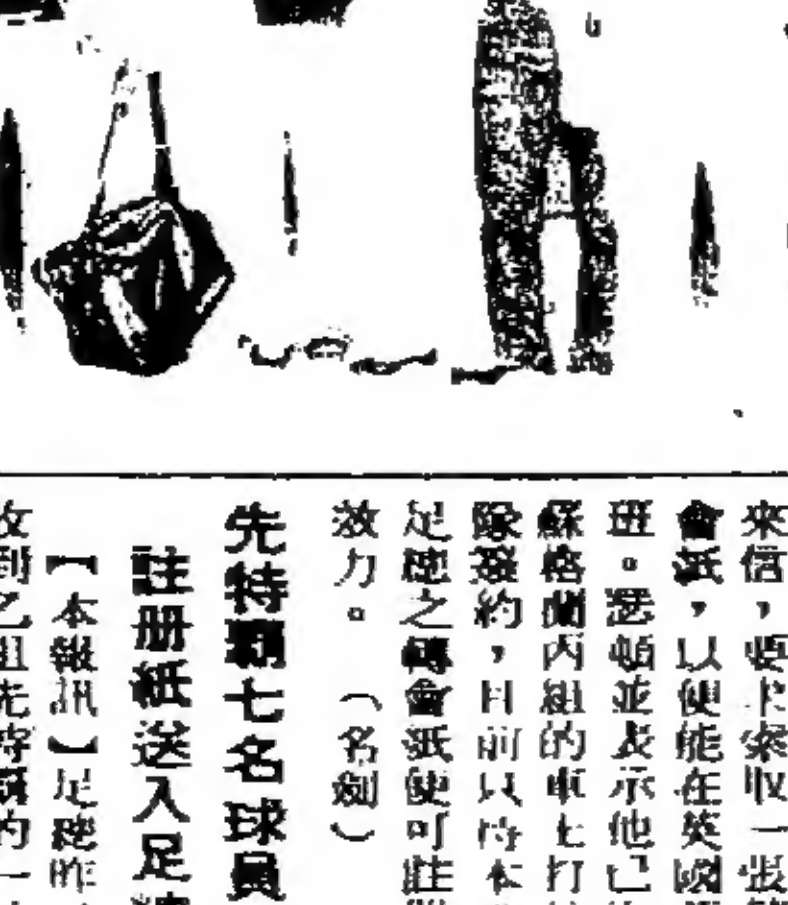 來信，要求索取一張
會紙，以便能在英國
班。悉頓並表示他已
蘇格蘭丙組的車士打
隊簽約，目前只待本
足總之轉會紙便可註
效力。（名劍）
先特霸七名球員
註册紙送入足總
【本報訊】足總昨
收到乙組先特霸的一